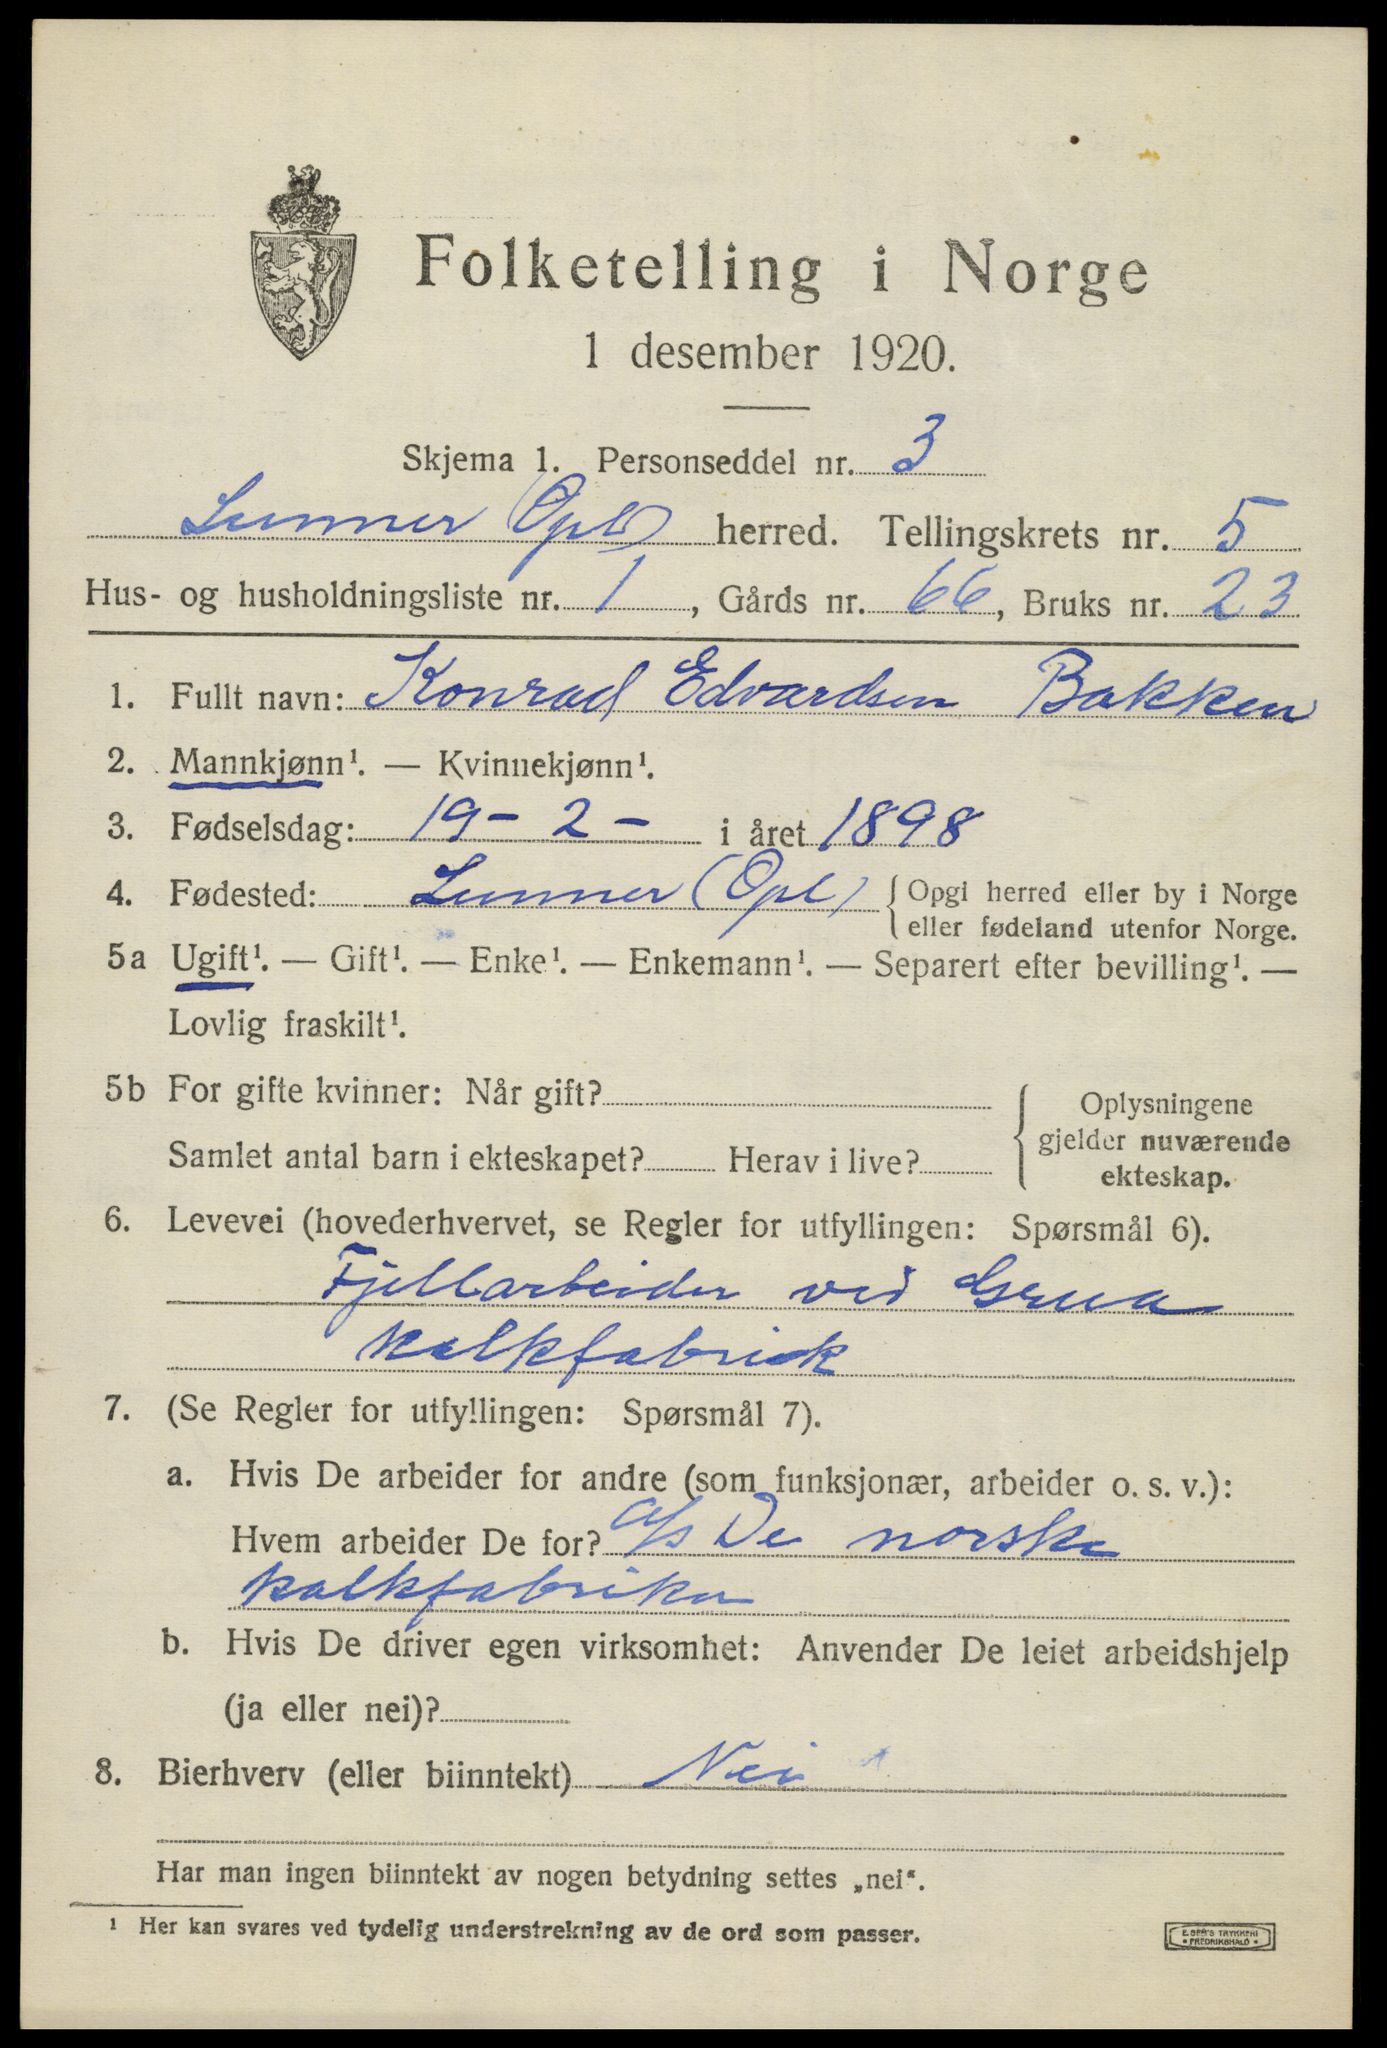 Folketelling i Norge
1 desember 1920.
Skjema 1. Personseddel nr. 3
Lunner (Opl) herred. Tellingskrets nr. 5
Hus- og husholdningsliste nr. 1, Gårds nr. 66, Bruks nr. 23
1. Fullt navn: Konrad Edvardsen Bakken
2. Mannkjønn¹. — Kvinnekjønn¹.
3. Fødselsdag: 19 - 2 - i året 1898
4. Fødested: Lunner (Opl) { Opgi herred eller by i Norge
eller fødeland utenfor Norge.
5a Ugift¹. — Gift¹. — Enke¹. — Enkemann¹. — Separert efter bevilling¹. —
Lovlig fraskilt¹.
5b For gifte kvinner: Når gift?
Samlet antal barn i ekteskapet? Herav i live?
Oplysningene
gjelder nuværende
ekteskap.
6. Levevei (hovederhvervet, se Regler for utfyllingen: Spørsmål 6).
Fjellarbeider ved Grua
kalkfabrik
7. (Se Regler for utfyllingen: Spørsmål 7).
a. Hvis De arbeider for andre (som funksjonær, arbeider o. s. v.):
Hvem arbeider De for? a/s De norske
kalkfabriker
b. Hvis De driver egen virksomhet: Anvender De leiet arbeidshjelp
(ja eller nei)?
8. Bierhverv (eller biinntekt) Nei
Har man ingen biinntekt av nogen betydning settes „nei“.
¹ Her kan svares ved tydelig understrekning av de ord som passer.
E. SEM'S TRYKKERI
• FREDRIKSHALD •